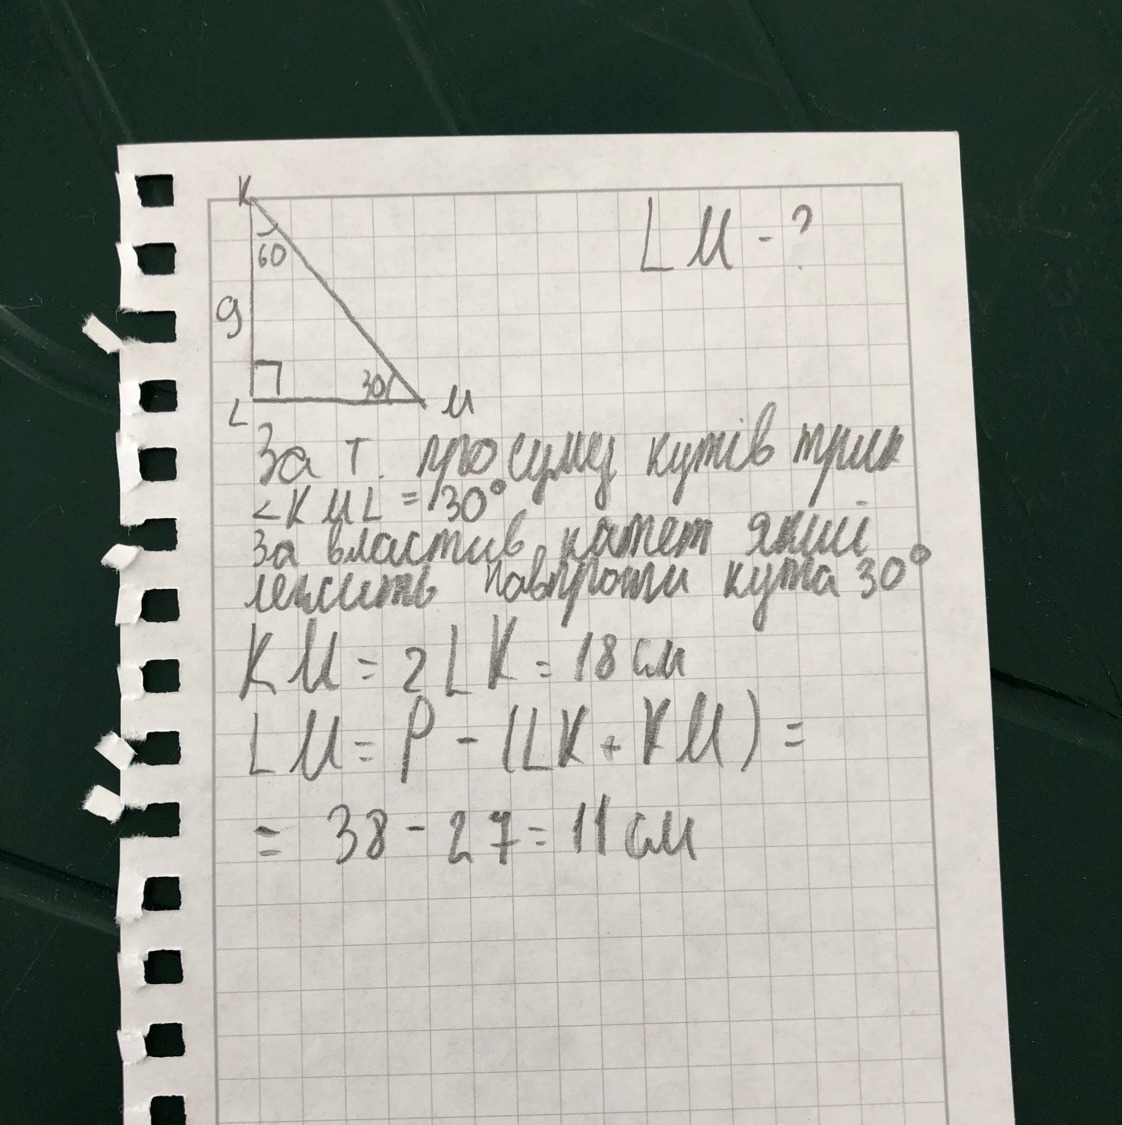 K
LM - ?
60
9
30
L
M
За т. про суму кутів трик
∠KML = 30°
За властив. катет який
лежить навпроти кута 30°
KM = 2LK = 18 см
LM = P - (LK + KM) =
= 38 - 27 = 11 см